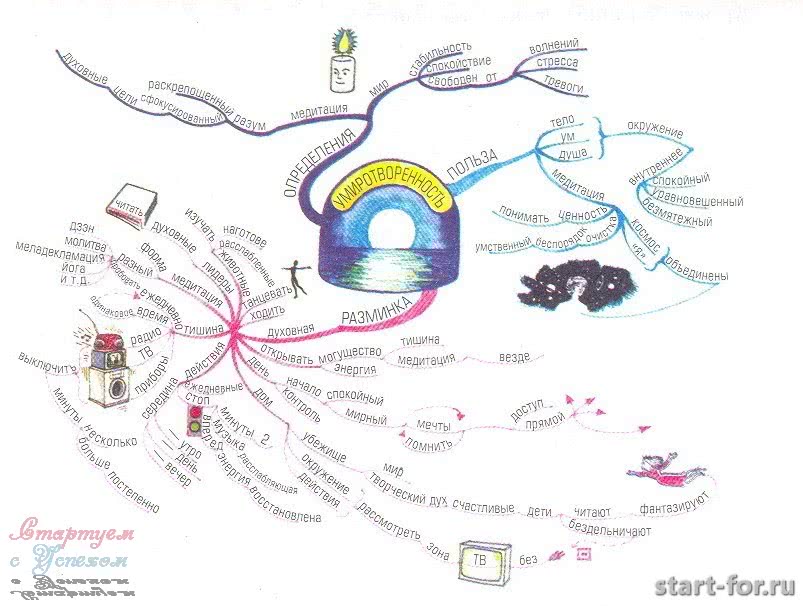 УМИРОТВОРЕННОСТЬ
ОПРЕДЕЛЕНИЯ
медитация
разум
раскрепощенный
сфокусированный
цели
духовные
мир
стабильность
спокойствие
свободен от
волнений
стресса
тревоги
ПОЛЬЗА
тело
ум
душа
окружение
внутреннее
спокойный
уравновешенный
безмятежный
медитация
ценность
понимать
очистка
беспорядок
умственный
космос
"Я"
объединены
РАЗМИНКА
духовная
открывать
могущество
тишина
энергия
медитация
везде
день
начало
спокойный
контроль
мирный
мечты
помнить
доступ
прямой
дом
убежище
мир
творческий дух
счастливые
дети
читают
фантазируют
бездельничают
окружение
расслабляющая
действия
рассмотреть
зона
ТВ
без
ежедневные
стоп
минуты 2
музыка
вперед
энергия
восстановлена
действия
середина
утро
день
вечер
несколько
минуты
больше
постепенно
тишина
радио
ТВ
приборы
выключить
ежедневно
пробовать
время
одинаковое
медитация
форма
разный
дзэн
молитва
меладекламация
йога
и т.д.
лидеры
духовные
изучать
читать
животные
наготове
расслабленные
танцевать
ходить
Стартуем
с Успехом
start-for.ru